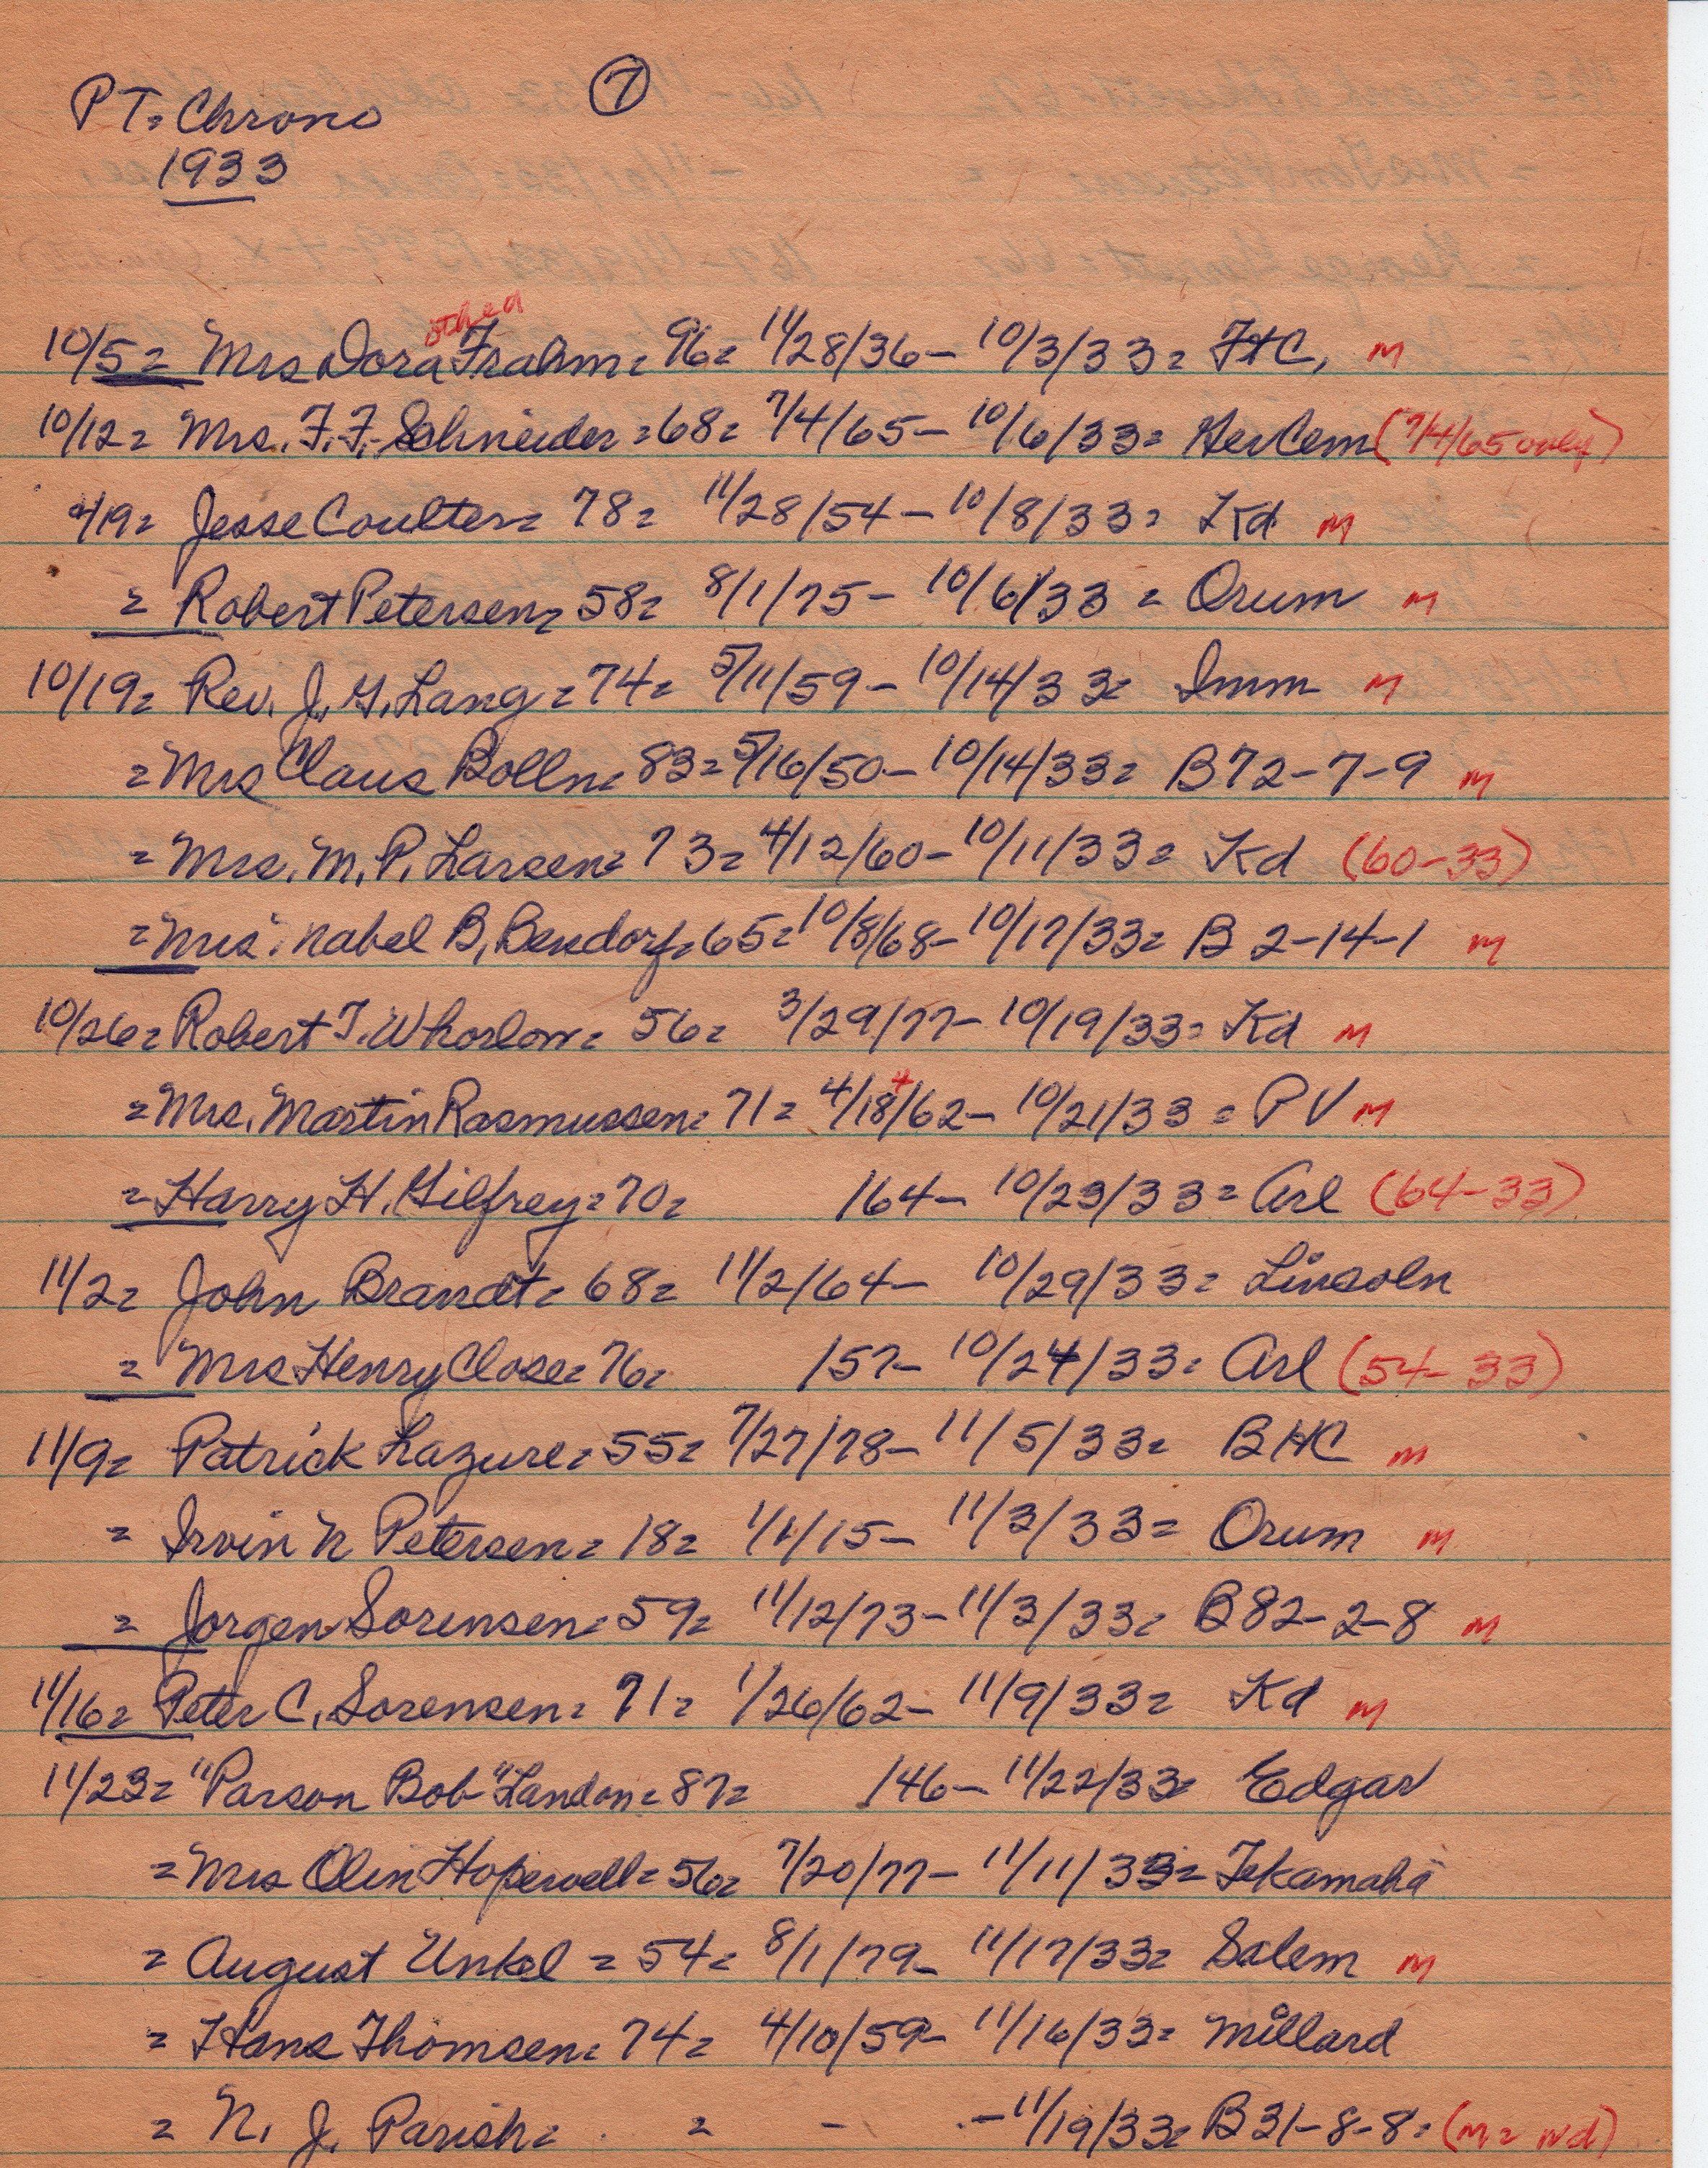 PT= Chrono ⑦
1933
othea
10/5= Mrs Dora Frahm= 96= 11/28/36- 10/3/33= FtC, m
10/12= Mrs. F.F. Schneider=68= 7/4/65- 10/6/33= HerCem (7/4/65 only)
10/19= Jesse Coulter= 78= 11/28/54- 10/8/33= Kd m
= Robert Petersen= 58= 8/1/75- 10/6/33= Orum m
10/19= Rev. J. G. Lang=74= 5/11/59- 10/14/33= Imm m
=Mrs Claus Bolln= 83= 5/16/50- 10/14/33= B72-7-9 m
=Mrs. M. P. Larsen= 73= 4/12/60- 10/11/33= Kd (60-33)
=Mrs. Nabel B. Bendorf=65= 10/8/68- 10/17/33= B 2-14-1 m
10/26= Robert T. Whorlow= 56= 3/29/77- 10/19/33= Kd m
4
=Mrs. Martin Rasmussen= 71= 4/18/62- 10/21/33= PV m
=Harry H. Gilfrey=70= /64- 10/23/33= Arl (64-33)
11/2= John Brandt= 68= 11/2/64- 10/29/33= Lincoln
= Mrs Henry Close= 76= /57- 10/24/33= Arl (54-33)
11/9= Patrick Lazure= 55= 7/27/78- 11/5/33= BHC m
= Irvin N Petersen= 18= 1/1/15- 11/3/33= Orum m
= Jorgen Sorensen= 59= 11/12/73- 11/3/33= B82-2-8 m
11/16= Peter C. Sorensen= 71= 1/26/62- 11/9/33= Kd m
11/23= "Parson Bob" Landon= 87= /46- 11/22/33= Edgar
=Mrs Olin Hopewell= 56= 7/20/77- 11/11/33= Tekamaha
= August Unkel = 54= 8/1/79- 11/17/33= Salem m
= Hans Thomsen= 74= 4/10/59- 11/16/33= Millard
= N. J. Parish= = - -11/19/33= B31-8-8= (m= nd)